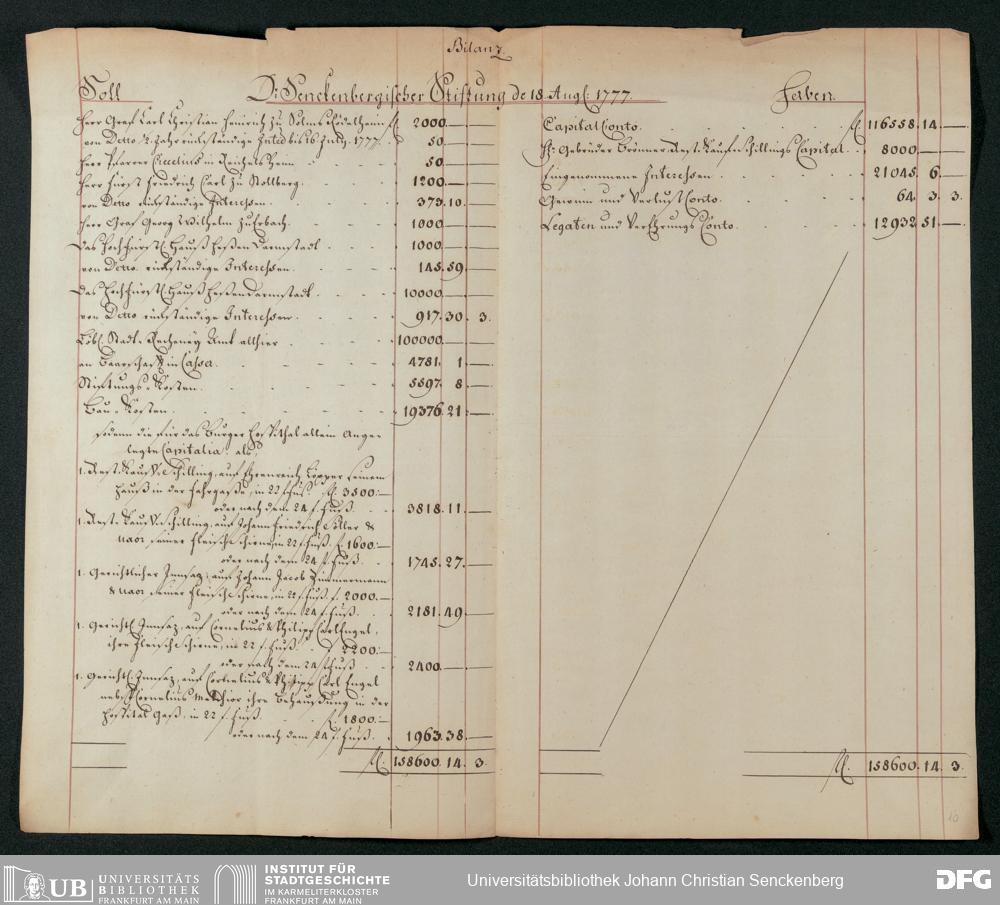 Bilanz.
Soll Dr: Senckenbergischer Stiftung de 18 Augl: 1777. Haben.
Herr Graf Carl Christian Heinrich zu Solms Rödelheim fl. 2000. —
von Detto ½ Jahr rückständige Intes bis 16 July 1777. 50. —
Herr Pfarrer Claudius in Reichelsheim 50 —
Herr Fürst Friedrich Carl zu Stollberg. 1200. —
von Detto rückständige Interessen. 373. 10. —
Herr Graf Georg Wilhelm zu Erbach. 1000 —
Das Hochfürstl. Hauß Heßen Darmstadt 1000. —
von Detto rückständige Interessen. 145. 59. —
Das Hochfürstl. Hauß Heßen Darmstadt. 10000. —
von Detto rückständige Interessen. 917. 30. 3.
Löbl. Stadt-Recheney Amt allhier 100000. —
an Baarschafft in Cassa. 4781. 1. —
Stiftungs-Kosten. 5597. 8. —
Bau-Kosten. 19376. 21. —
sodann die für das Burger Hospithal allein Ange-
legte Capitalia als,
1. Rest-Kauf-Schilling, auf Ehrenreich Köpper seinem
Hauß in der Fahrgaße, in 22 f. Fuß. fl. 3500. —
oder nach dem 24 f. Fuß. 3818. 11. —
1. Rest-Kauf-Schilling, auf Johann Friedrich &
uxor seiner Fleisch Schirne, in 22 f. Fuß. f. 1600. —
oder nach dem 24 f. Fuß. 1745. 27. —
1. Gerichtlicher Innsaz, auf Johann Jacob Zimmermann
& uxor seiner Fleisch Schirne, in 22 f. Fuß. f. 2000. —
oder nach dem 24 f. Fuß. 2181. 49. —
1. Gerichtl. Innsaz, auf Cornelius & Philipp Carl Engel,
ihre Fleisch Schirne, in 22 f. Fuß. f. 2200. —
oder nach dem 24 f. Fuß 2400. —
1. Gerichtl. Innsaz, auf Cornelius & Philipp Carl Engel
nebst Cornelius Melchior ihre Behaußung in der
Hospital Gaß, in 22 f. Fuß. f. 1800. —
oder nach dem 24 f. Fuß. 1963. 38. —
fl. 158600. 14. 3.
Capital Conto. fl. 116558. 14. —
H: Gebrüder Brönner Rest-Kauf-Schillings Capital. 8000. —
Eingenommene Interessen 21045. 6. —
Gewinn und Verlust Conto. 64. 3. 3.
Legaten und Verehrungs Conto. 12932. 51. —
fl. 158600. 14. 3.
10
UB UNIVERSITÄTS
BIBLIOTHEK
FRANKFURT AM MAIN
INSTITUT FÜR
STADTGESCHICHTE
IM KARMELITERKLOSTER
FRANKFURT AM MAIN
Universitätsbibliothek Johann Christian Senckenberg
DFG